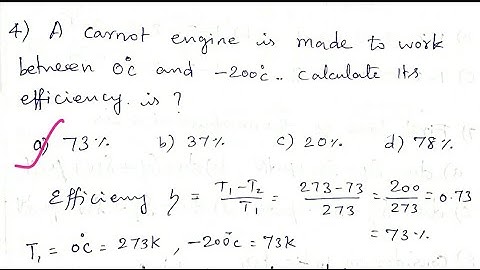 4) A carnot engine is made to work
between 0°c and -200°c.. calculate its
efficiency. is ?
a) 73% b) 37% c) 20% d) 78%
Efficieny η = T₁-T₂/T₁ = 273-73/273 = 200/273 = 0.73
= 73%
T₁ = 0°c = 273K , -200°c = 73K